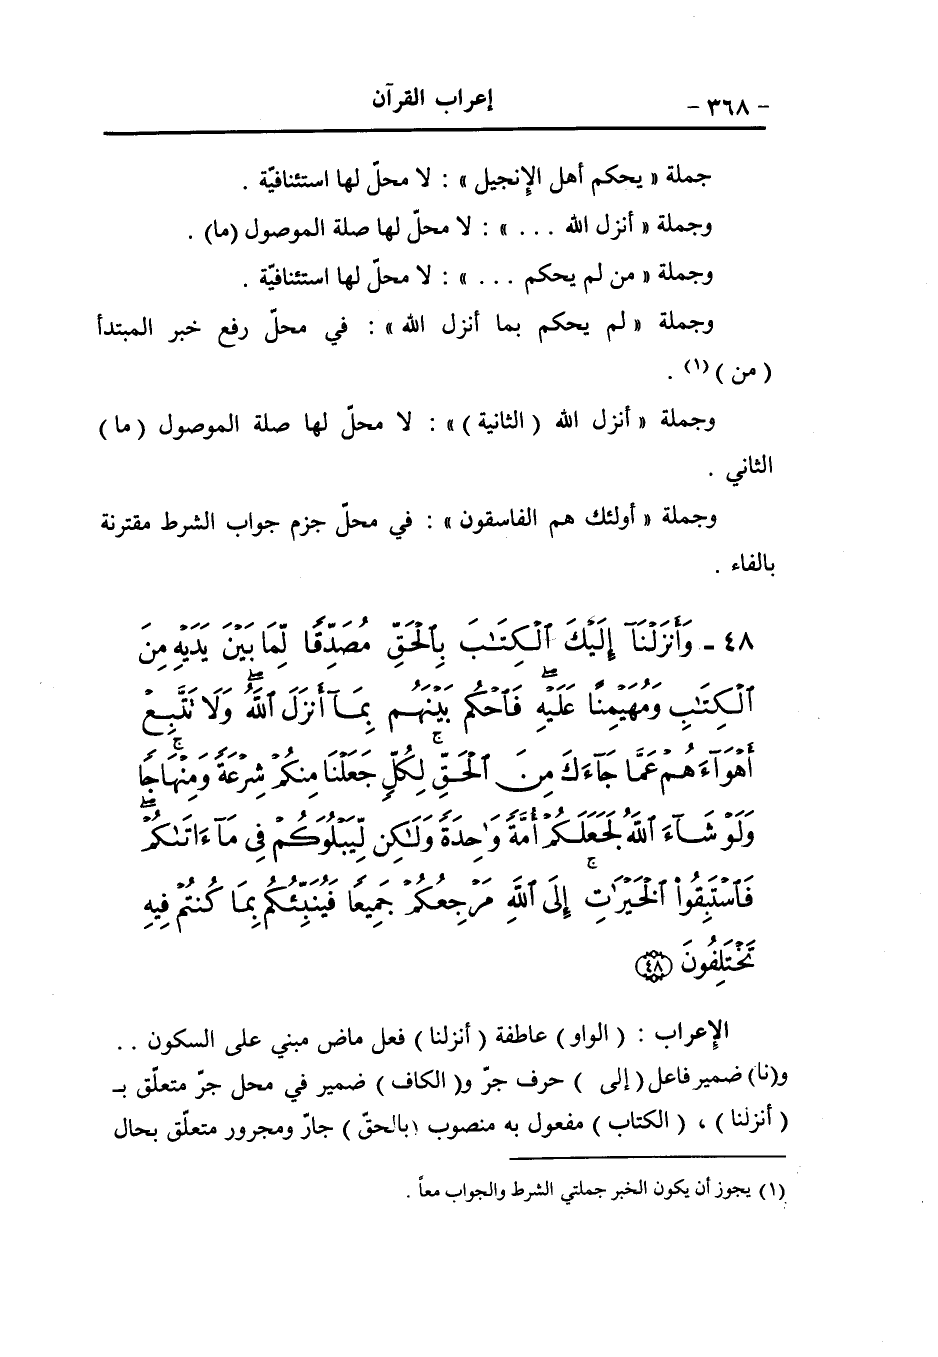 - ٣٦٨ -
إعراب القرآن
جملة « يحكم أهل الإنجيل » : لا محلّ لها استئنافيّة .
وجملة « أنزل الله . . . » : لا محلّ لها صلة الموصول (ما) .
وجملة « من لم يحكم . . . » : لا محلّ لها استئنافيّة .
وجملة « لم يحكم بما أنزل الله » : في محلّ رفع خبر المبتدأ
( من )(١) .
وجملة « أنزل الله ( الثانية ) » : لا محلّ لها صلة الموصول ( ما )
الثاني .
وجملة « أولئك هم الفاسقون » : في محلّ جزم جواب الشرط مقترنة
بالفاء .
٤٨ - وَأَنزَلْنَآ إِلَيْكَ ٱلْكِتَٰبَ بِٱلْحَقِّ مُصَدِّقًا لِّمَا بَيْنَ يَدَيْهِ مِنَ
ٱلْكِتَٰبِ وَمُهَيْمِنًا عَلَيْهِ ۖ فَٱحْكُم بَيْنَهُم بِمَآ أَنزَلَ ٱللَّهُ ۖ وَلَا تَتَّبِعْ
أَهْوَآءَهُمْ عَمَّا جَآءَكَ مِنَ ٱلْحَقِّ ۚ لِكُلٍّ جَعَلْنَا مِنكُمْ شِرْعَةً وَمِنْهَاجًا ۚ
وَلَوْ شَآءَ ٱللَّهُ لَجَعَلَكُمْ أُمَّةً وَٰحِدَةً وَلَٰكِن لِّيَبْلُوَكُمْ فِى مَآ ءَاتَىٰكُمْ ۖ
فَٱسْتَبِقُوا۟ ٱلْخَيْرَٰتِ ۚ إِلَى ٱللَّهِ مَرْجِعُكُمْ جَمِيعًا فَيُنَبِّئُكُم بِمَا كُنتُمْ فِيهِ
تَخْتَلِفُونَ ﴿٤٨﴾
الإعراب : ( الواو ) عاطفة ( أنزلنا ) فعل ماض مبني على السكون . .
و(نا) ضمير فاعل ( إلى ) حرف جرّ و( الكاف ) ضمير في محل جرّ متعلّق بـ
( أنزلنا ) ، ( الكتاب ) مفعول به منصوب (بالحقّ ) جارّ ومجرور متعلّق بحال
(١) يجوز أن يكون الخبر جملتي الشرط والجواب معاً .